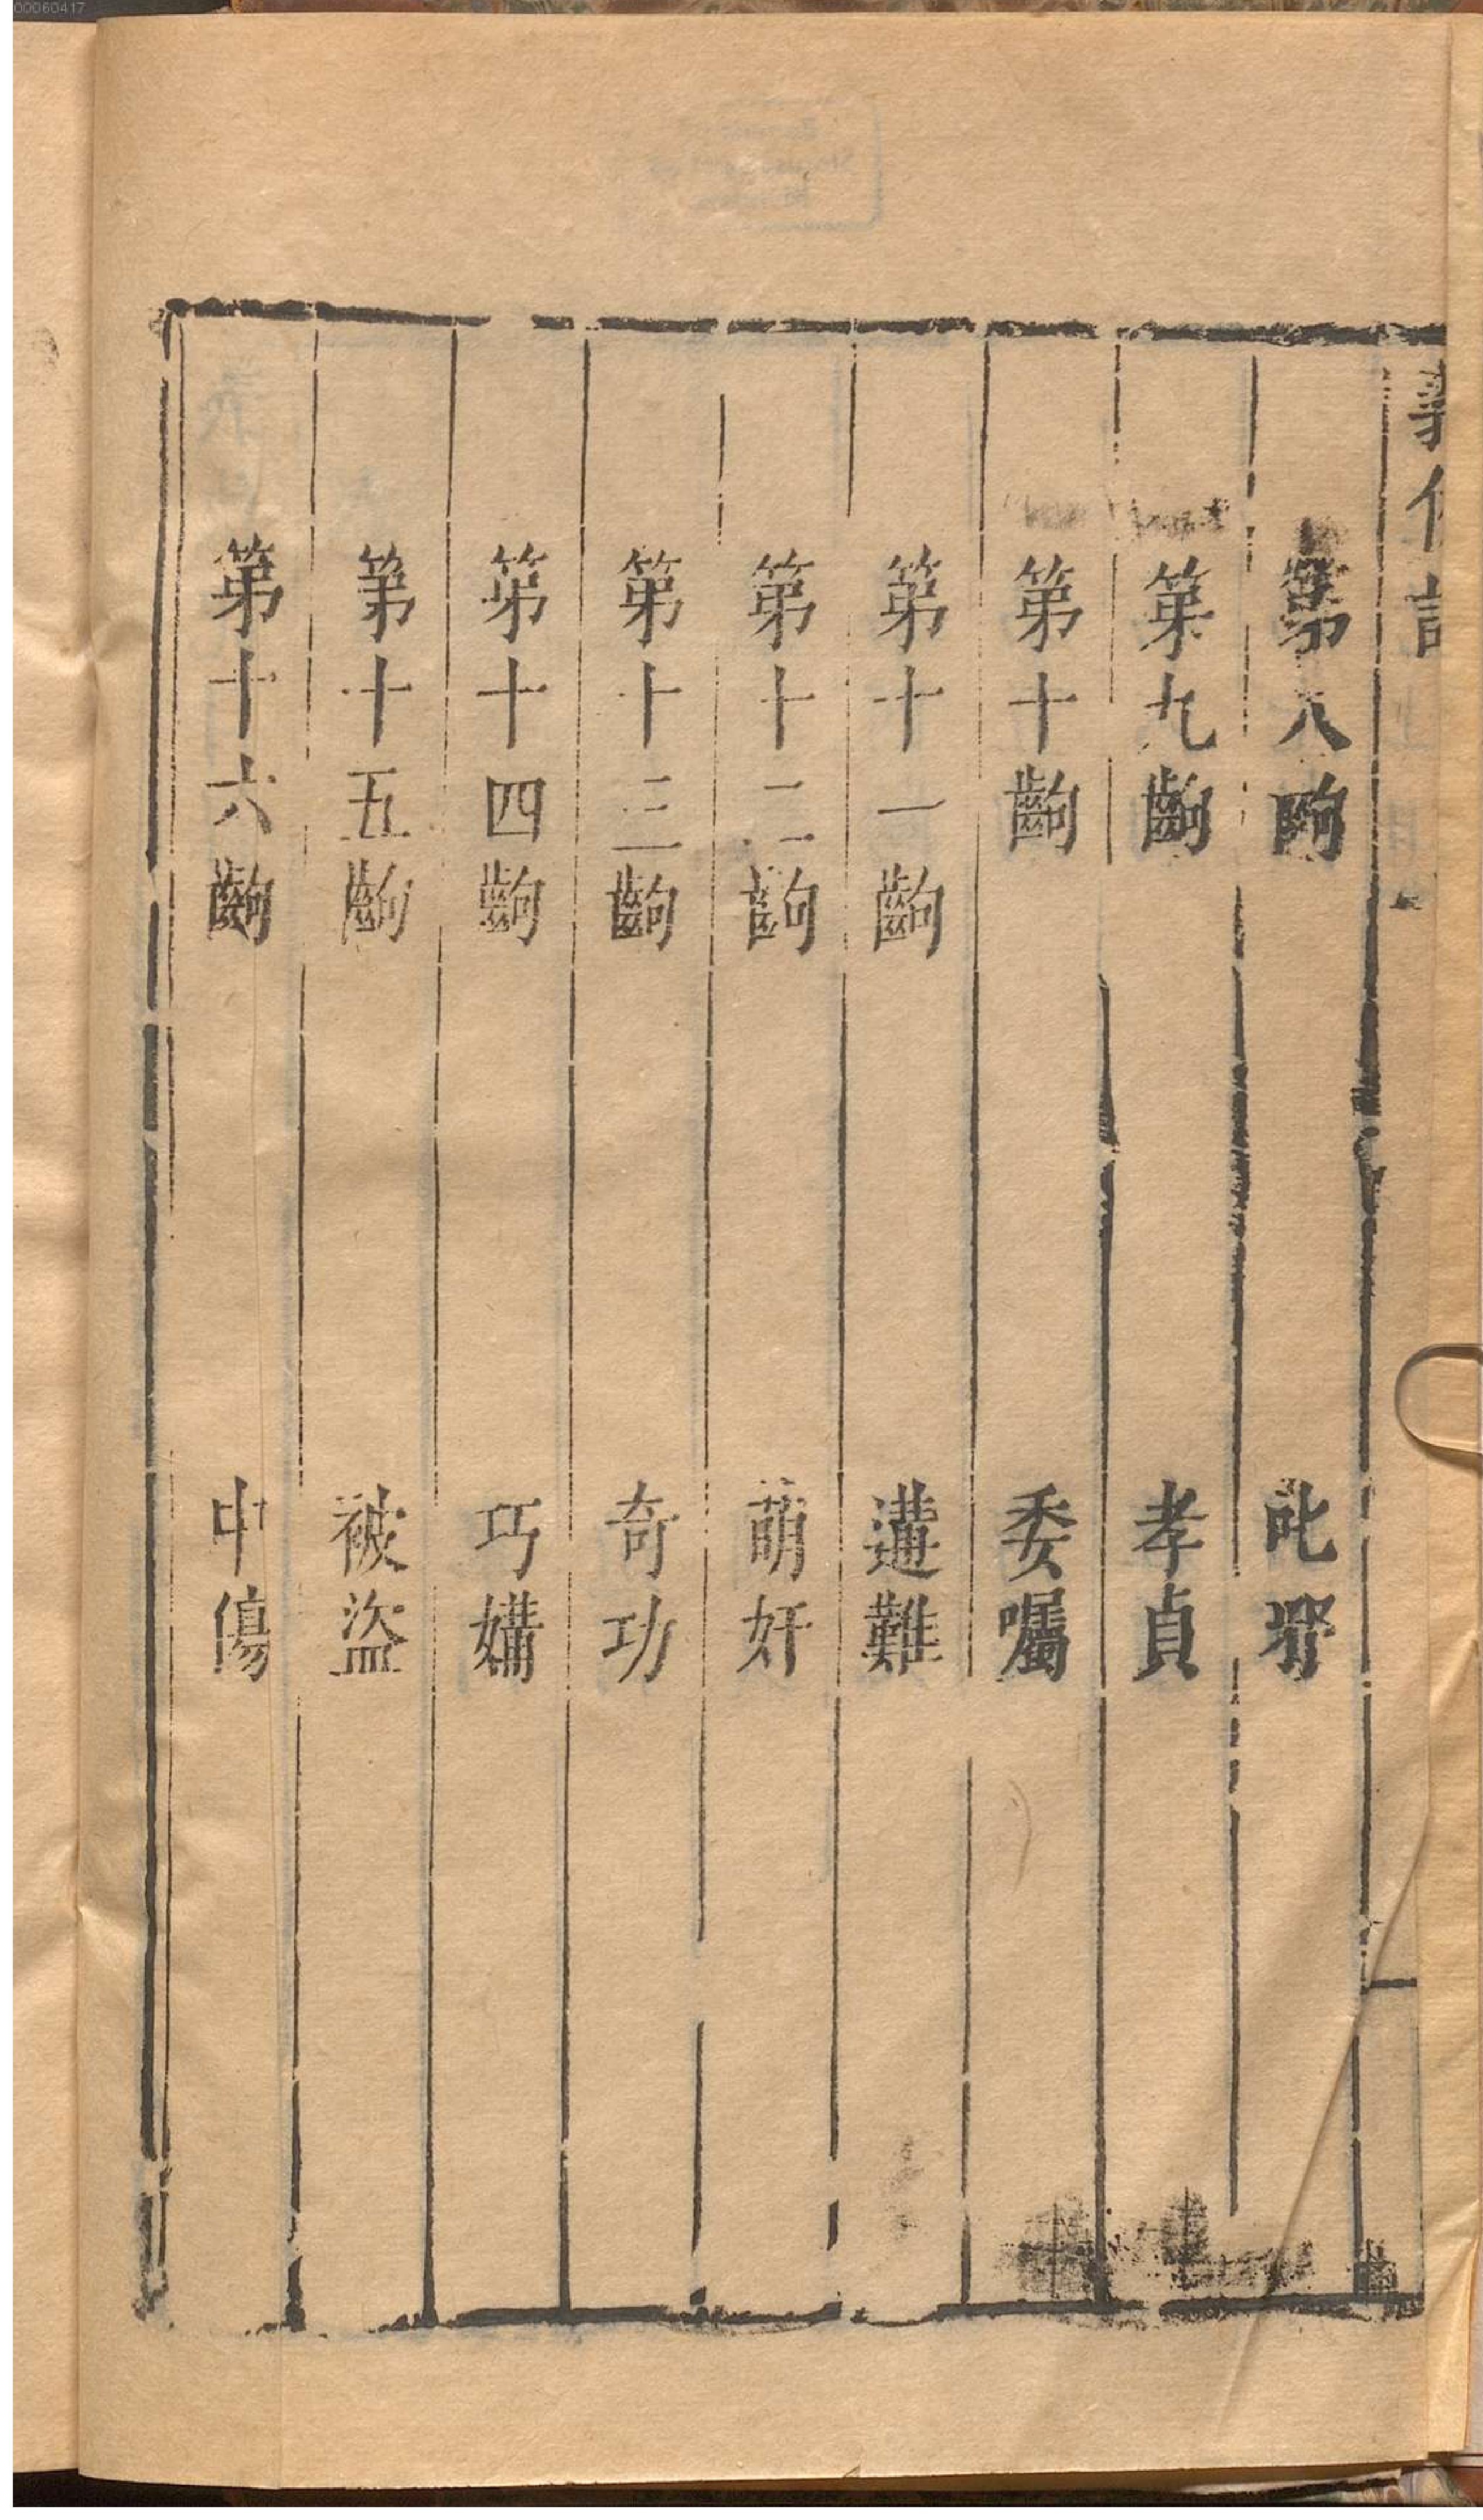 義俠記
第八齣 叱壻
第九齣 孝貞
第十齣 委囑
第十一齣 遘難
第十二齣 萌奸
第十三齣 奇功
第十四齣 巧媾
第十五齣 被盜
第十六齣 中傷
00060417